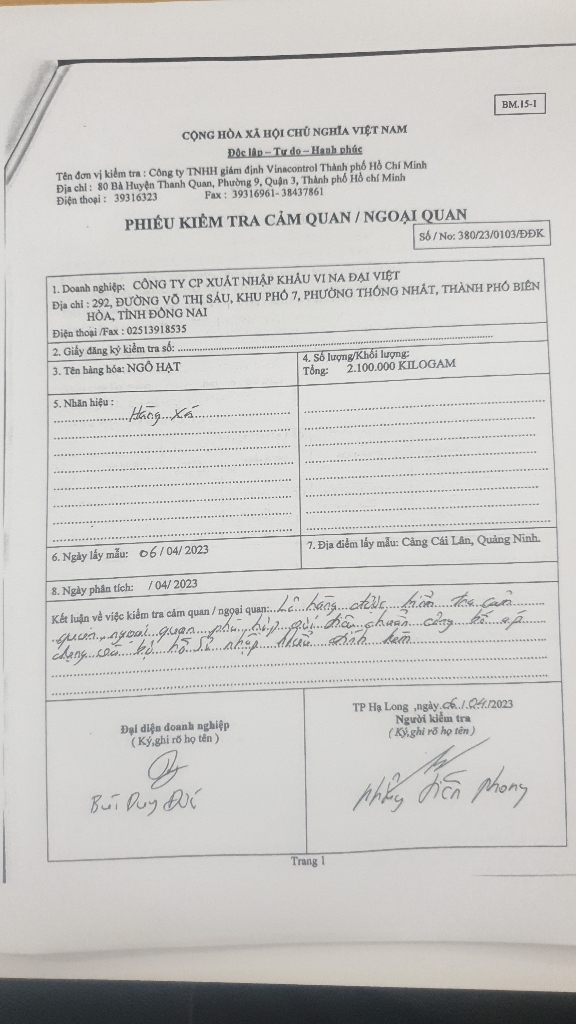 BM.15-1
CỘNG HÒA XÃ HỘI CHỦ NGHĨA VIỆT NAM
Độc lập – Tự do – Hạnh phúc
Tên đơn vị kiểm tra : Công ty TNHH giám định Vinacontrol Thành phố Hồ Chí Minh
Địa chỉ : 80 Bà Huyện Thanh Quan, Phường 9, Quận 3, Thành phố Hồ chí Minh
Điện thoại : 39316323 Fax : 39316961- 38437861
PHIẾU KIỂM TRA CẢM QUAN / NGOẠI QUAN
Số / No: 380/23/0103/ĐĐK
1. Doanh nghiệp: CÔNG TY CP XUẤT NHẬP KHẨU VI NA ĐẠI VIỆT
Địa chỉ : 292, ĐƯỜNG VÕ THỊ SÁU, KHU PHỐ 7, PHƯỜNG THỐNG NHẤT, THÀNH PHỐ BIÊN
HÒA, TỈNH ĐỒNG NAI
Điện thoại /Fax : 02513918535
2. Giấy đăng ký kiểm tra số:
3. Tên hàng hóa: NGÔ HẠT
4. Số lượng/Khối lượng:
Tổng: 2.100.000 KILOGAM
5. Nhãn hiệu :
Hàng Xá
6. Ngày lấy mẫu: 06 / 04/ 2023
7. Địa điểm lấy mẫu: Cảng Cái Lân, Quảng Ninh.
8. Ngày phân tích: / 04/ 2023
Kết luận về việc kiểm tra cảm quan / ngoại quan: Lô hàng được kiểm tra cảm
quan, ngoại quan phù hợp với tiêu chuẩn công bố áp
dụng bộ hồ sơ nhập khẩu đính kèm
Đại diện doanh nghiệp
( Ký,ghi rõ họ tên )
Bùi Duy Đức
TP Hạ Long ,ngày 06 / 04 /2023
Người kiểm tra
( Ký,ghi rõ họ tên )
Tiến Phong
Trang 1